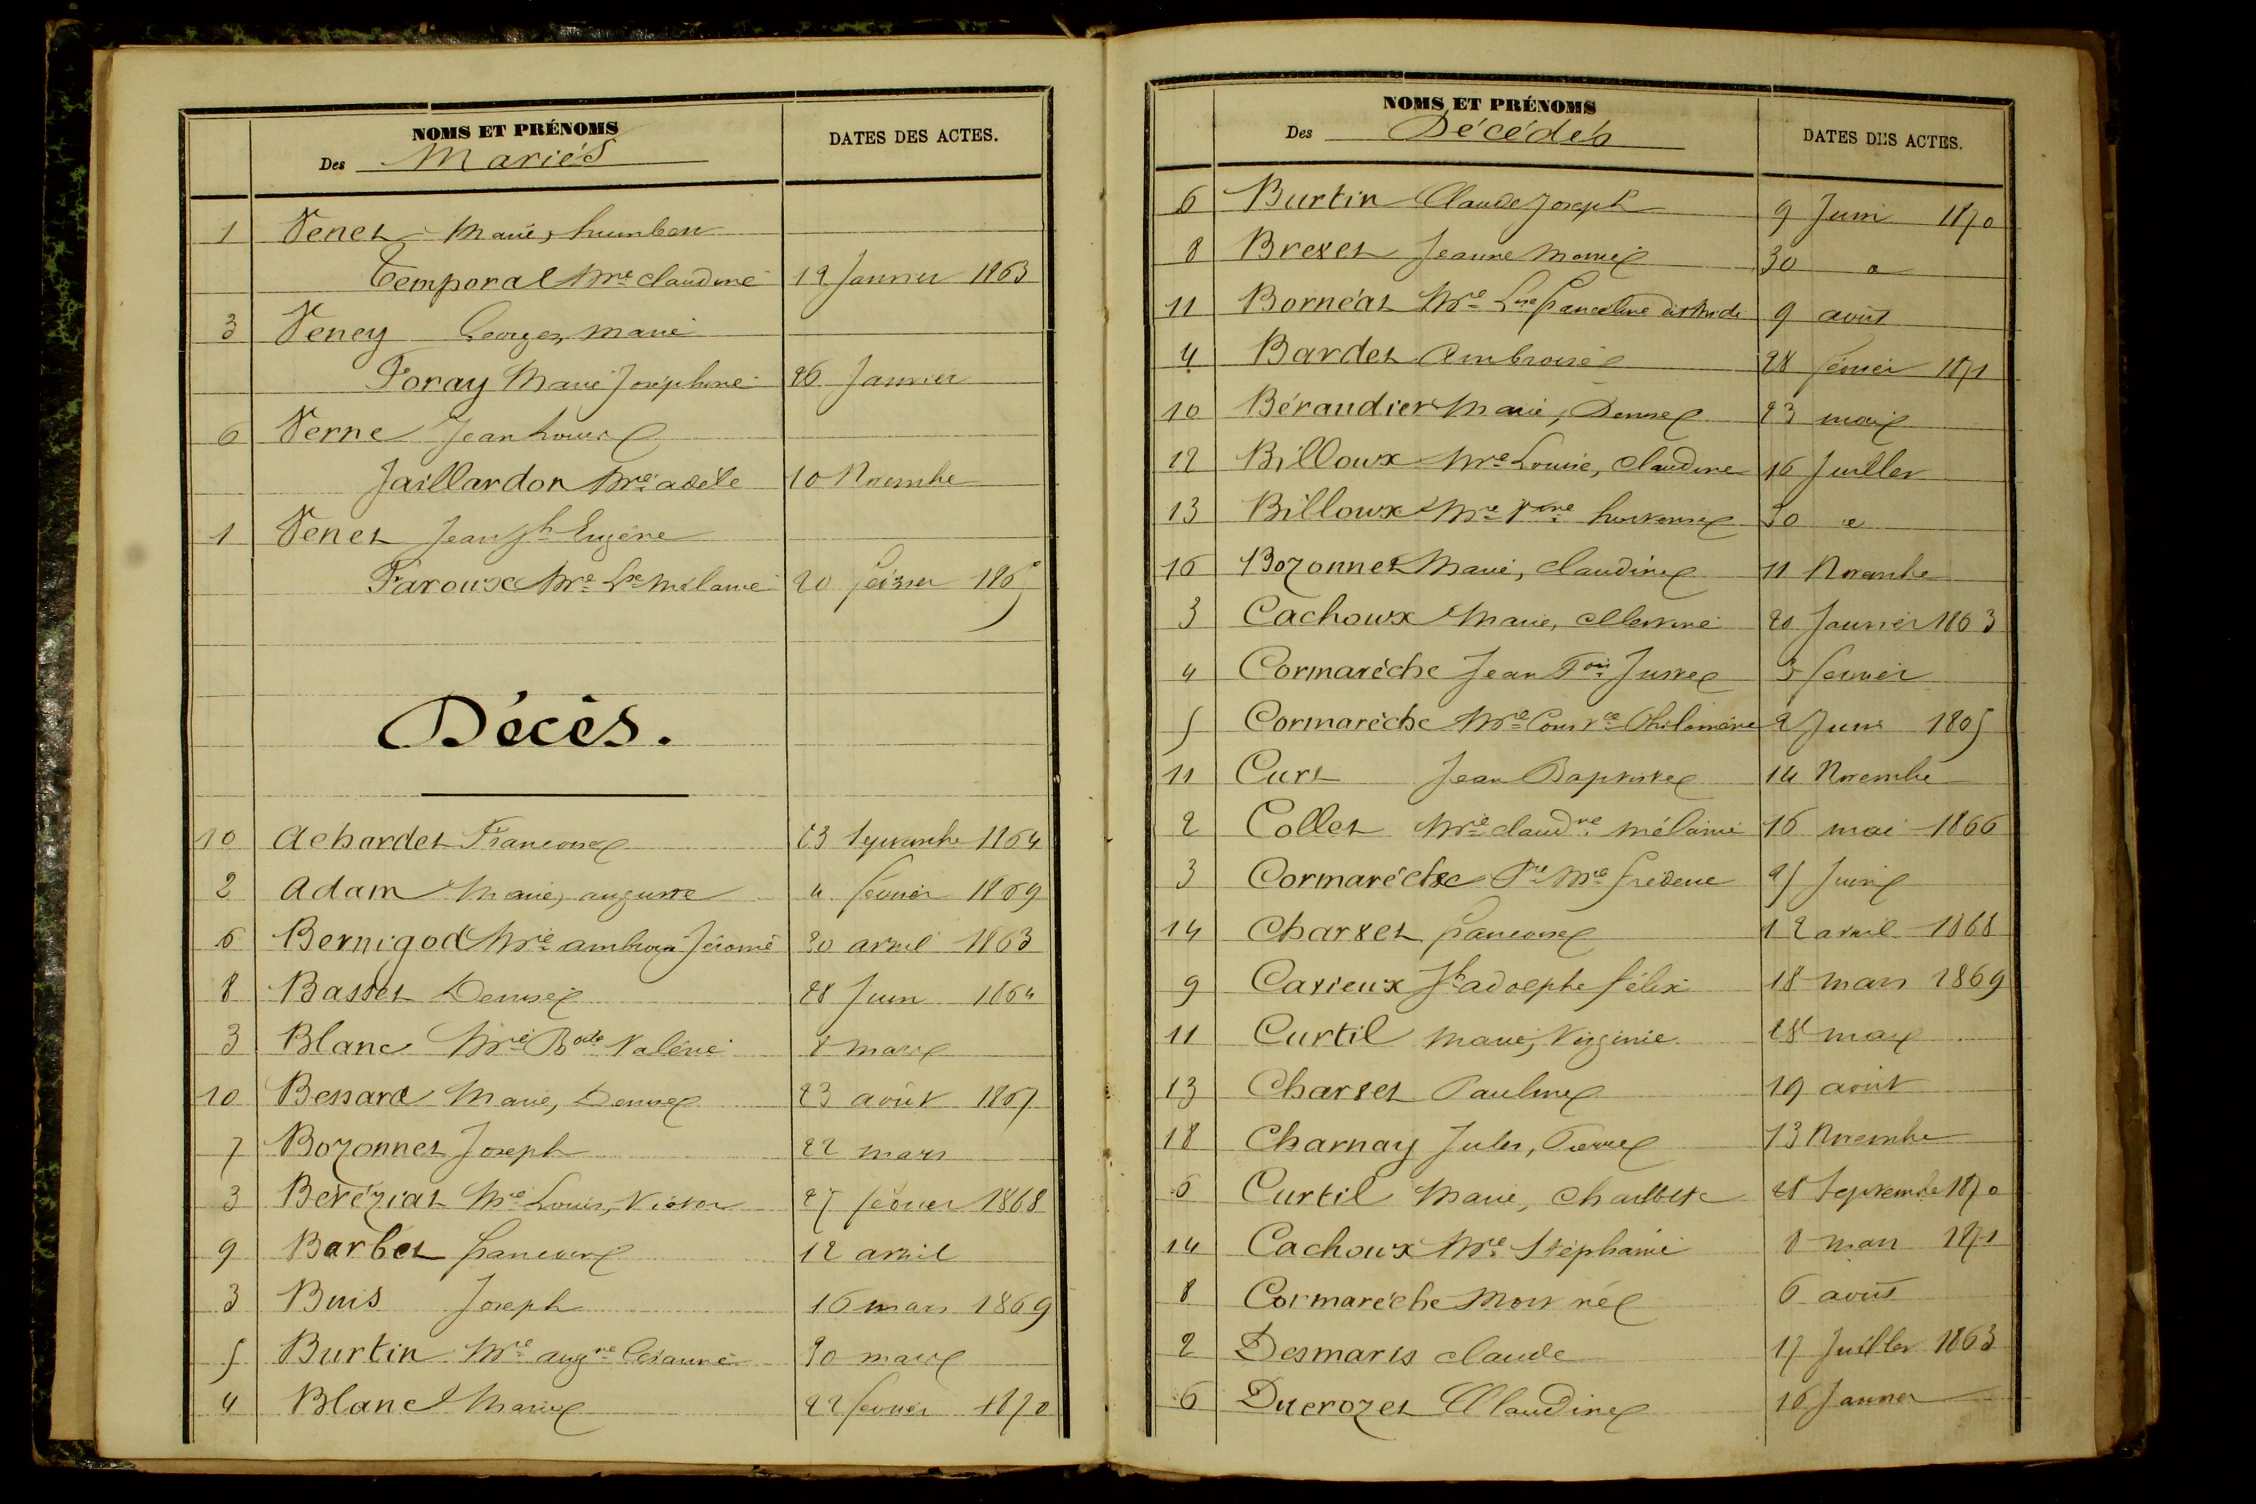 NOMS ET PRÉNOMS
Des Mariés
DATES DES ACTES.
1 Venet Marie, humbert
Temporal Mre claudine 12 Janvier 1863
3 Veney Georges, marie
Foray Marie Joséphine 26 Janvier
6 Verne Jean Louis
Jaillardon Mre adèle 10 Novembre
1 Venet Jean Jh Eugène
Faroux Mre Lse mélanie 20 février
Décès.
10 Achardet Francoise 23 Septembre 1864
2 Adam Marie, auguste 4 février 1869
6 Bernigod Mre ambroise Jérome 20 avril 1863
8 Basset Denise 28 Juin 1864
3 Blanc Mre Valérie 8 mars
10 Bessard Marie, Denise 23 août 1867
7 Bozonnet Joseph 22 mars
3 Béréziat Mre Louis, Victor 27 février 1868
9 Barbet francoise 12 avril
3 Buis Joseph 16 mars 1869
5 Burtin Mre augne 20 mars
4 Blanc Marie 22 février 1870
NOMS ET PRÉNOMS
Des Décédés
DATES DES ACTES.
6 Burtin Claude Joseph 9 Juin 1870
8 Brevet Jeanne Marie 30
11 Bornéat Mre Lse 9 août
4 Bardet Ambroise 28 février 1871
10 Béraudier Marie, Denise 23 mai
12 Billoux Mre Louise, claudine 16 Juillet
13 Billoux Mre hortense 30
16 Bozonnet Marie, claudine 11 Novembre
3 Cachoux Marie, 20 Janvier 1863
4 Cormarèche Jean Fois Juste 3 février
5 Cormarèche Mre Philomène 2 Juin 1865
11 Curt Jean Baptiste 14 Novembre
2 Collet Mre claudne mélanie 16 mai 1866
3 Cormarèche Pre Mre 25 Juin
14 Charvet francoise 12 avril 1868
9 Carieux Jh adolphe félix 18 mars 1869
11 Curtil Marie, Virginie 28 mai
13 Charvet Pauline 19 août
18 Charnay Jules, Pierre 13 Novembre
6 Curtil Marie, Charlotte 28 Septembre 1870
14 Cachoux Mre Stéphanie 8 mars 1871
8 Cormarèche Mort né 6 août
2 Desmaris claude 17 Juillet 1863
6 Ducrozet Claudine 16 Janvier